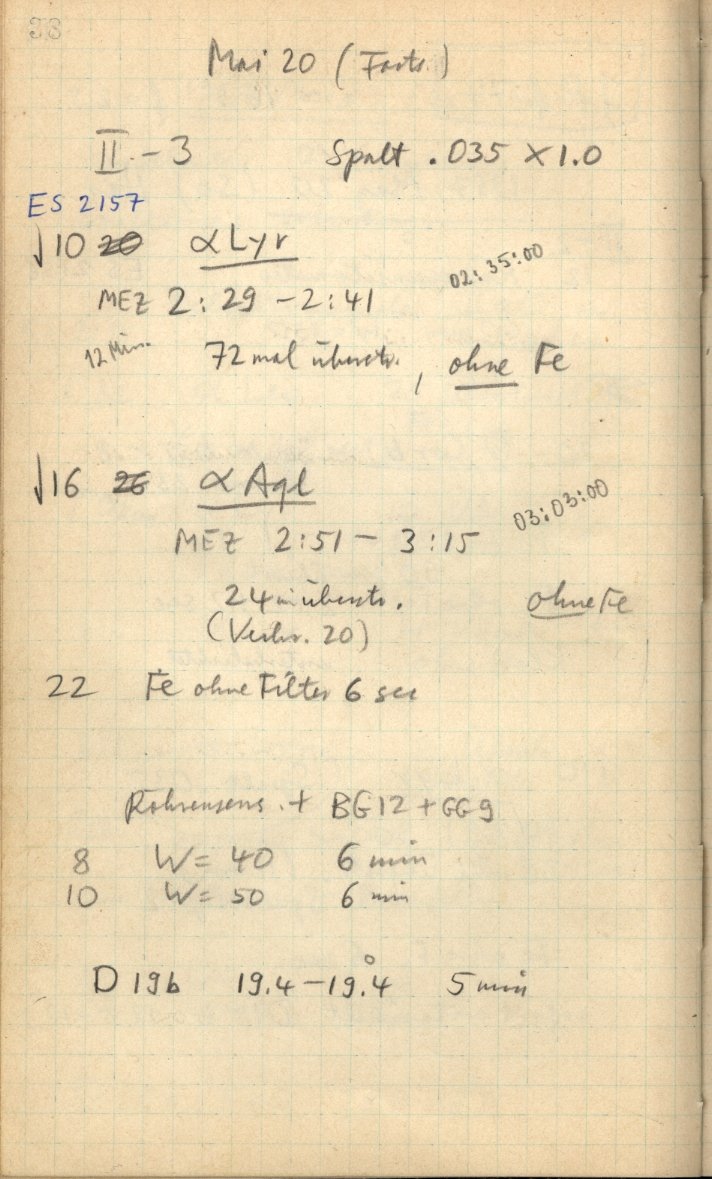 38
Mai 20 (Forts.)
II - 3 Spalt .035 X 1.0
ES 2157
√10 20 α Lyr
02:35:00
MEZ 2:29 - 2:41
12 Min. 72 mal überstr., ohne Fe
√16 26 α Aql
03:03:00
MEZ 2:51 - 3:15
24 m überstr. ohne Fe
(Verbr. 20)
22 Fe ohne Filter 6 sec
Röhrensens. + BG12 + GG9
8 W = 40 6 min
10 W = 50 6 min
D 19b 19.4 - 19.°4 5 min